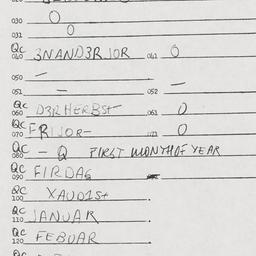 030 O
031 O
QC 040 3NAND3RJOR 041 O
050 –
051 – 052 –
QC 060 D3RHERBST 063 O
QC 070 FRIJOR– 073 O
QC 080 – Q FIRST MONTH OF YEAR
QC 090 FIRDAG
QC 100 XAUD1St .
QC 110 JANUAR .
QC 120 FEBUAR .